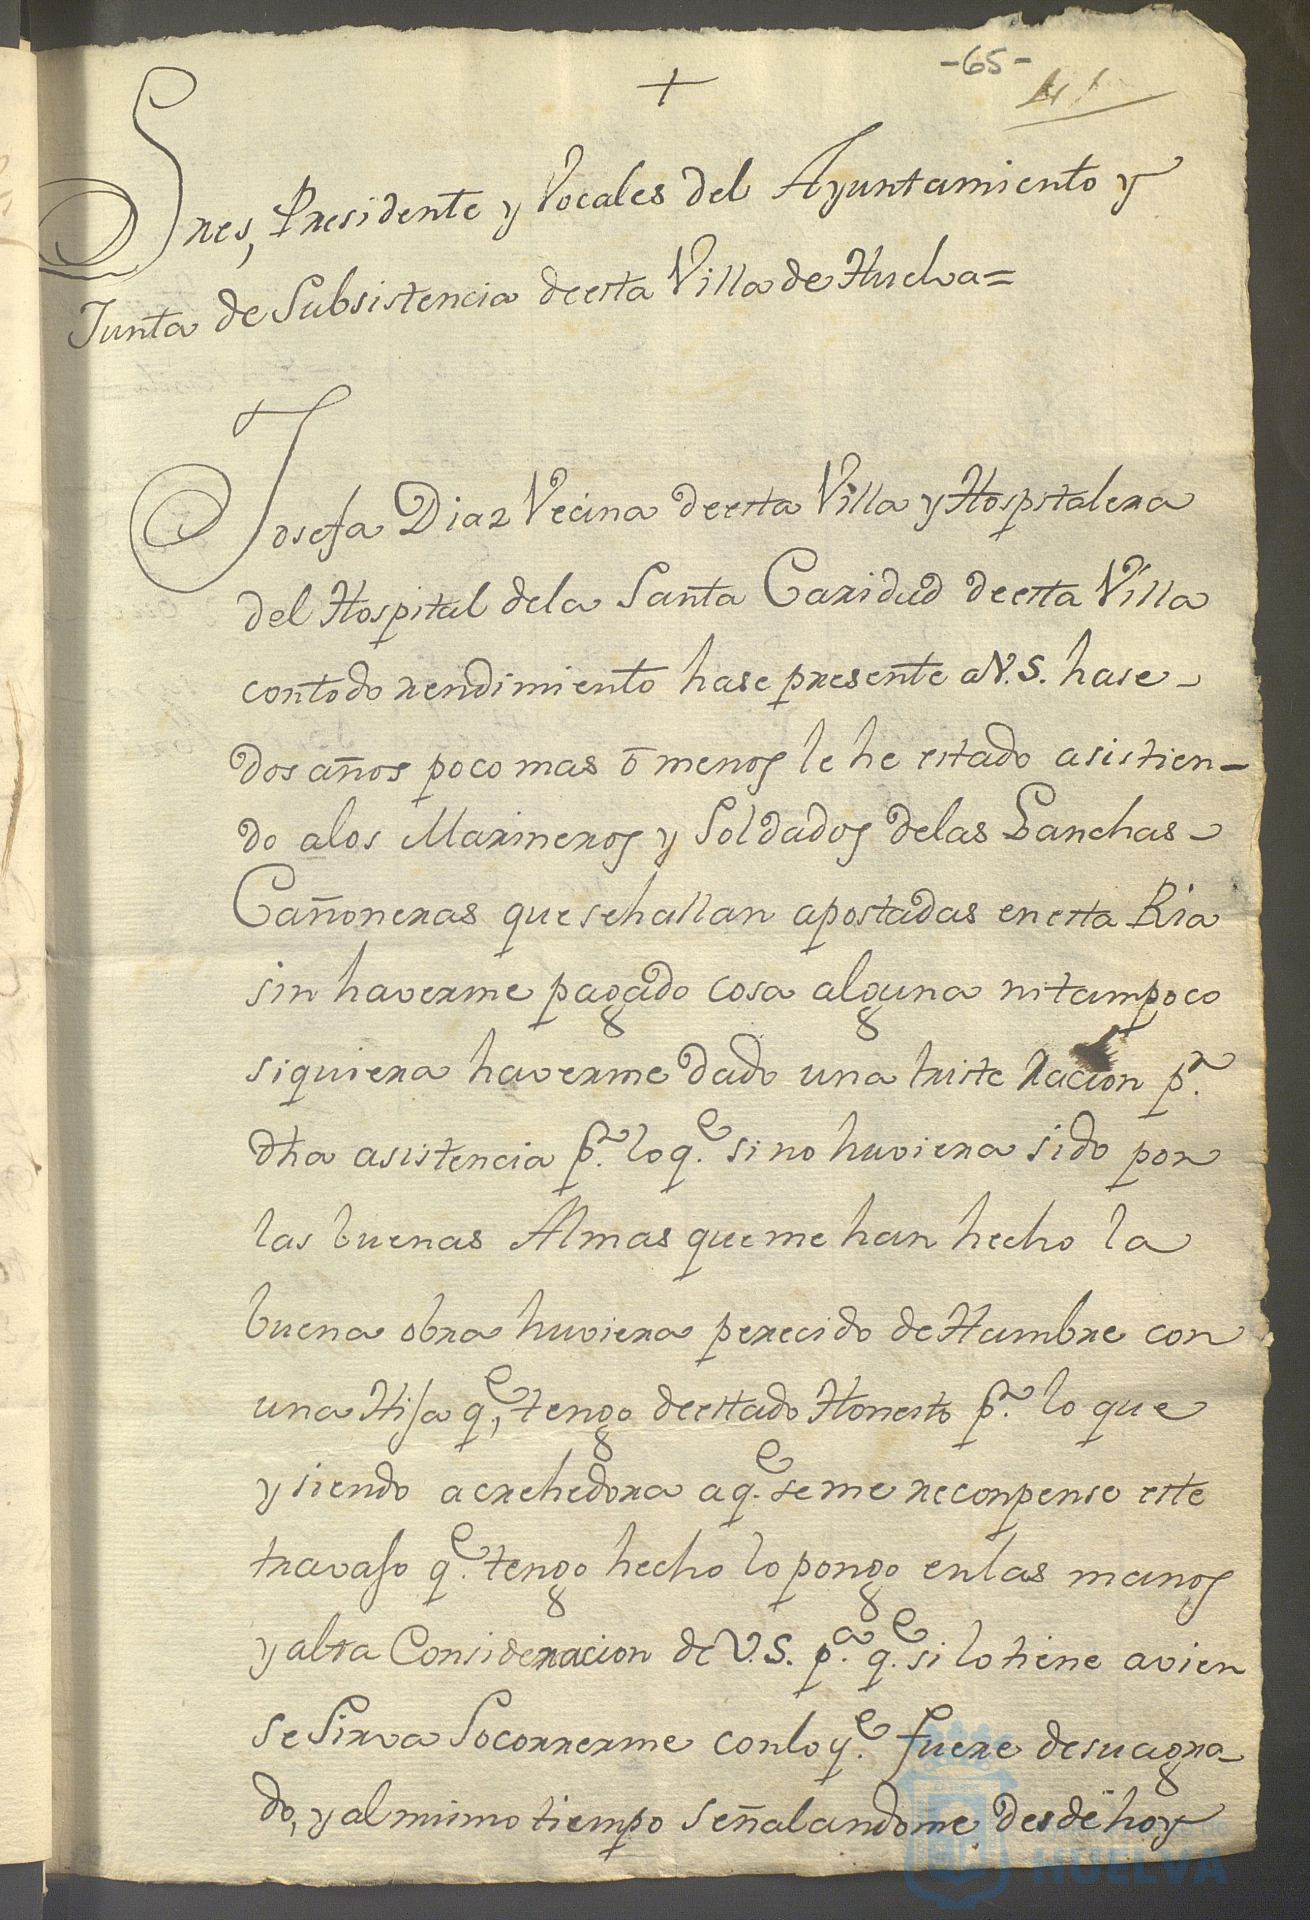 -65-
41
+
Sres, Presidente y Vocales del Ayuntamiento y
Junta de Subsistencia deesta Villa de Huelva=
Josefa Diaz Vecina deesta Villa y Hospitalera
del Hospital dela Santa Caridad deesta Villa
contodo rendimiento hase presente aV.S. hase
dos años poco mas ō menos le he estado asistien-
do alos Marineros y Soldados delas Lanchas
Cañoneras que sehallan apostadas enesta Ria
sin haverme pagado cosa alguna nitampoco
siquiera haverme dado una triste racion pr.
dha asistencia pr. loqe. si no huviera sido por
las buenas Almas queme han hecho la
buena obra huviera perecido de Hambre con
una Hija qe, tengo deestado Honesto pr. lo que
y siendo acrehedora aqe. seme reconpense este
travajo qe. tengo hecho lo pongo enlas manos
y alta Consideracion de V.S. pa. qe. si lo tiene avien
se Sirva Socorrerme conloqe. fuere desuagra-
do, y almismo tiempo señalandome desde hoy
HUELVA